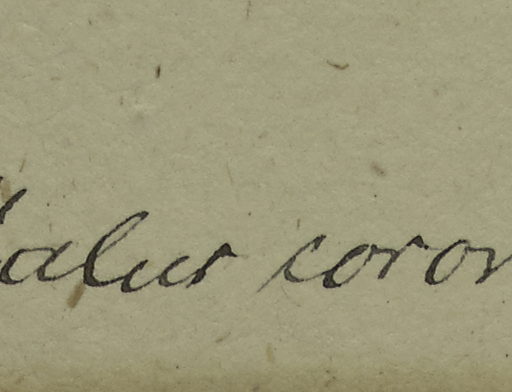 alus coron